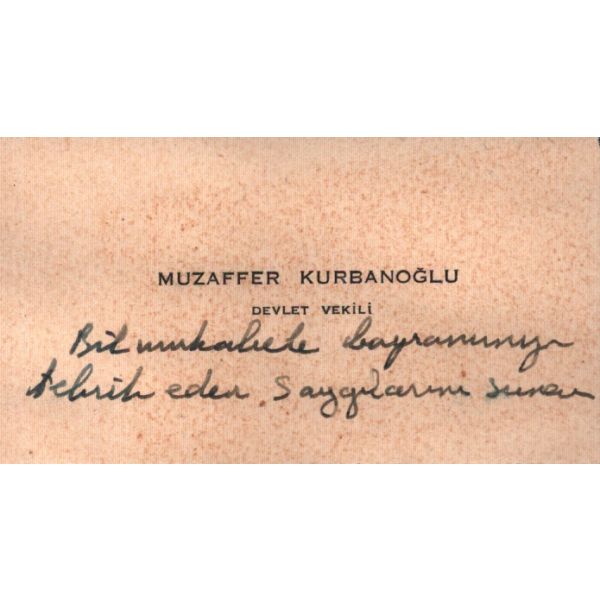 MUZAFFER KURBANOĞLU
DEVLET VEKİLİ
Bilmukabele bayramınızı
tebrik eder saygılarımı sunar